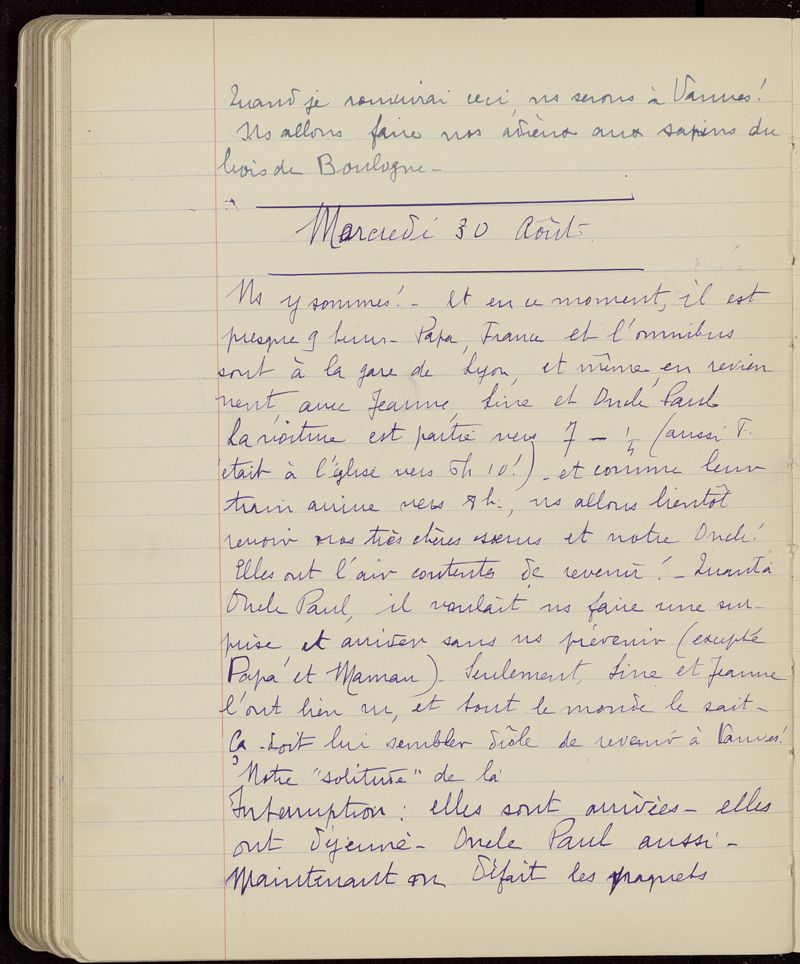 Quand je rouvrirai ceci, ns serons à Vannes!
Ns allons faire nos adieux aux sapins du
bois de Boulogne -
Mercredi 30 Août
Ns y sommes! - Et en ce moment, il est
presque 9 heures - Papa, France et l'omnibus
sont à la gare de Lyon, et même en revien
nent, avec Jeanne, Line et Oncle Paul
La voiture est partie vers 7 - ¼ (aussi F.
était à l'église vers 5h 10!) - et comme leur
train arrive vers 8h., ns allons bientôt
revoir nos très chères sœurs et notre Oncle!
Elles ont l'air contentes de revenir! - Quant à
Oncle Paul, il voulait ns faire une sur-
prise et arriver sans ns prévenir (excepté
Papa et Maman). Seulement, Line et Jeanne
l'ont bien vu, et tout le monde le sait -
Ça doit lui sembler drôle de revenir à Vannes!
Notre "solitude" de la
Interruption : elles sont arrivées - elles
ont déjeuné - Oncle Paul aussi -
Maintenant on défait les paquets